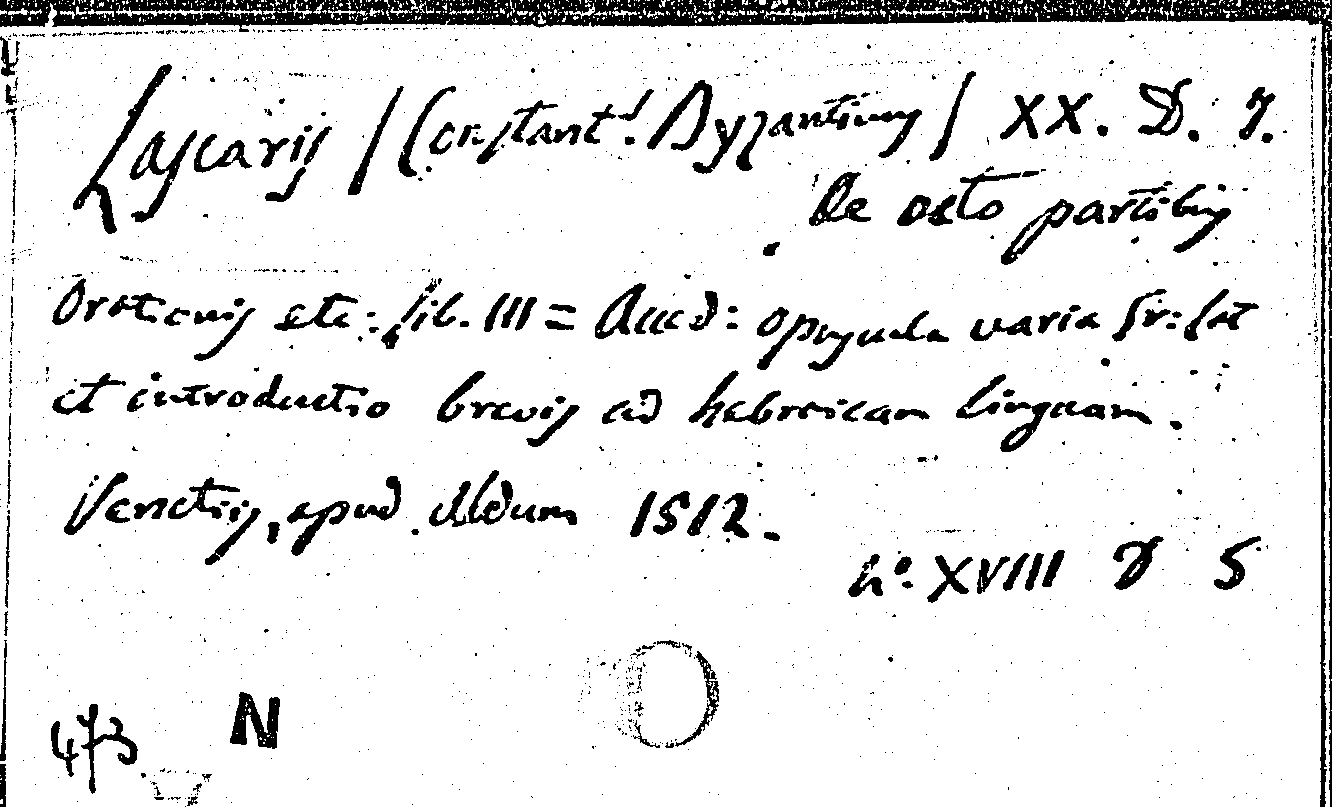 Lascaris / Constant! Byzantinus / XX. D. 7.
De octo partibus
Orationis etc: lib. III = Acced: opuscula varia Gr: Lat
et introductio brevis ad hebraicam linguam.
Venetiis, apud Aldum 1512.
h°. XVIII 5
473 N